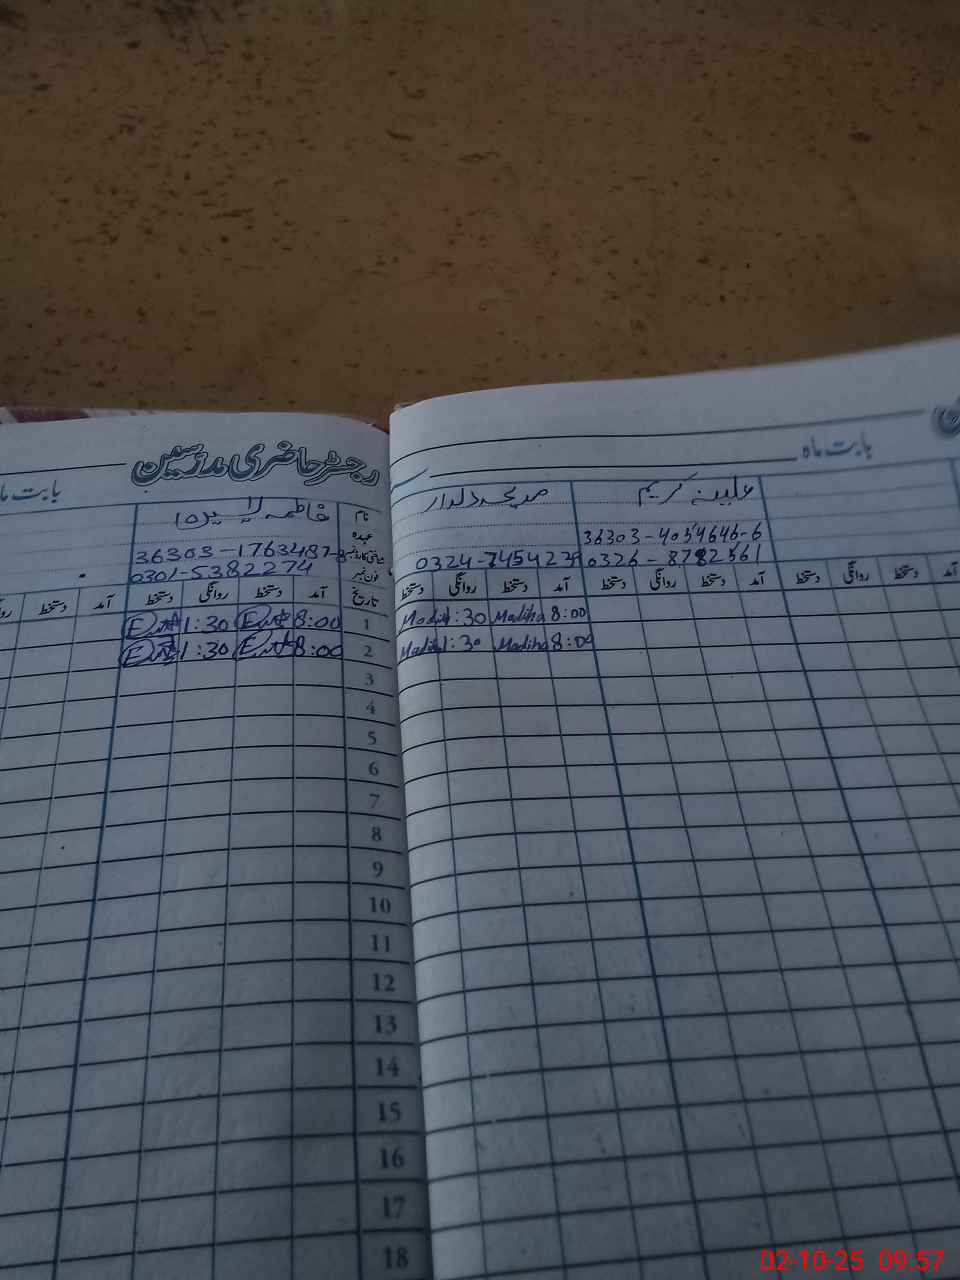 رجسٹر حاضری مدرسین
بابت ماہ
بابت ماہ
نام
فاطمہ
عہدہ
شناختی کارڈ نمبر
36303-1763487-
فون نمبر
0301-5382274
علینہ کریم
36303-4054646-6
0326-8782561
مدیحہ دلدار
0324-7454239
تاریخ آمد دستخط روانگی دستخط آمد دستخط
آمد دستخط روانگی دستخط آمد دستخط روانگی دستخط آمد دستخط روانگی دستخط
1 8:00 1:30
2 8:00 1:30
8:00 Madiha 1:30 Madiha
8:00 Madiha 1:30 Madiha
3
4
5
6
7
8
9
10
11
12
13
14
15
16
17
18
02-10-25 09:57